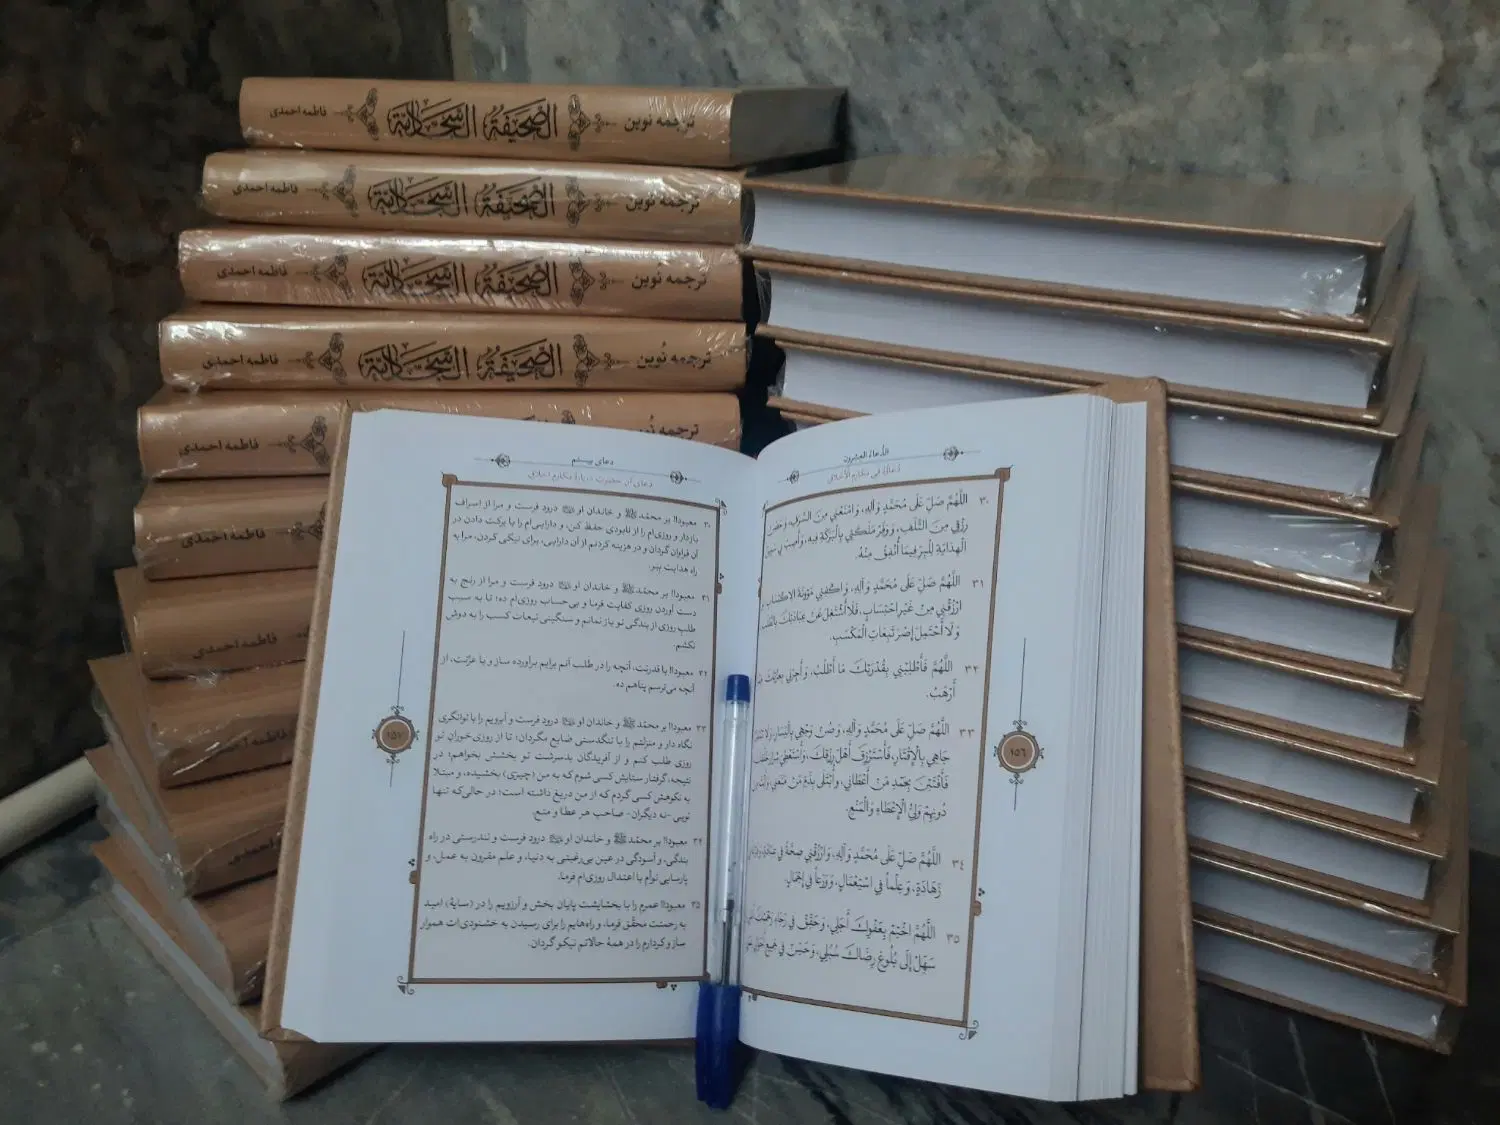 ترجمه نوین الصحیفة السجادیة فاطمه احمدی
ترجمه نوین الصحیفة السجادیة فاطمه احمدی
ترجمه نوین الصحیفة السجادیة فاطمه احمدی
ترجمه نوین الصحیفة السجادیة فاطمه احمدی
ترجمه نوین
فاطمه احمدی
فاطمه احمدی
فاطمه احمدی
فاطمه احمدی
احمدی
الدُّعاءُ العِشرون
دُعاؤُهُ في مَكارِمِ الأَخلاقِ
٣٠ اللَّهُمَّ صَلِّ عَلَى مُحَمَّدٍ وَآلِهِ، وَامْنَعْنِي مِنَ السَّرَفِ، وَحَصِّنْ
رِزْقِي مِنَ التَّلَفِ، وَوَفِّرْ مَلَكَتِي بِالْبَرَكَةِ فِيهِ، وَأَصِبْ بِي سَبِيلَ
الْهِدَايَةِ لِلْبِرِّ فِيمَا أُنْفِقُ مِنْهُ.
٣١ اللَّهُمَّ صَلِّ عَلَى مُحَمَّدٍ وَآلِهِ، وَاكْفِنِي مَؤُونَةَ الِاكْتِسَابِ،
ارْزُقْنِي مِنْ غَيْرِ احْتِسَابٍ، فَلَا أَشْتَغِلَ عَنْ عِبَادَتِكَ بِالطَّلَبِ
وَلَا أَحْتَمِلَ إِصْرَ تَبِعَاتِ الْمَكْسَبِ.
٣٢ اللَّهُمَّ فَأَطْلِبْنِي بِقُدْرَتِكَ مَا أَطْلُبُ، وَأَجِرْنِي بِعِزَّتِكَ
أَرْهَبُ.
٣٣ اللَّهُمَّ صَلِّ عَلَى مُحَمَّدٍ وَآلِهِ، وَصُنْ وَجْهِي بِالْيَسَارِ، وَلَا تَبْتَذِلْ
جَاهِي بِالْإِقْتَارِ، فَأَسْتَرْزِقَ أَهْلَ رِزْقِكَ، وَأَسْتَعْطِيَ شِرَارَ خَلْقِكَ
فَأَفْتَتِنَ بِحَمْدِ مَنْ أَعْطَانِي، وَأُبْتَلَى بِذَمِّ مَنْ مَنَعَنِي وَأَنْتَ مِنْ
دُونِهِمْ وَلِيُّ الْإِعْطَاءِ وَالْمَنْعِ.
٣٤ اللَّهُمَّ صَلِّ عَلَى مُحَمَّدٍ وَآلِهِ، وَارْزُقْنِي صِحَّةً فِي عِبَادَةٍ
زَهَادَةٍ، وَعِلْماً فِي اسْتِعْمَالٍ، وَوَرَعاً فِي إِجْمَالٍ.
٣٥ اللَّهُمَّ اخْتِمْ بِعَفْوِكَ أَجَلِي، وَحَقِّقْ فِي رَجَاءِ رَحْمَتِكَ
سَهِّلْ إِلَى بُلُوغِ رِضَاكَ سُبُلِي، وَحَسِّنْ فِي جَمِيعِ
١٥٦
دعای بیستم
دعای آن حضرت دربارهٔ مکارم اخلاق
٣٠ معبودا! بر محمّد ﷺ و خاندان او درود فرست و مرا از اسراف
بازدار و روزی‌ام را از نابودی حفظ کن، و دارایی‌ام را با برکت دادن در
آن فراوان گردان و در هزینه کردنم از آن دارایی، برای نیکی کردن، مرا به
راه هدایت ببر.
٣١ معبودا! بر محمّد ﷺ و خاندان او درود فرست و مرا از رنج به
دست آوردن روزی کفایت فرما و بی‌حساب روزی‌ام ده؛ تا به سبب
طلب روزی از بندگی تو باز نمانم و سنگینی تبعات کسب را به دوش
نکشم.
٣٢ معبودا! با قدرتت، آنچه را در طلب آنم برایم برآورده ساز و با عزّتت، از
آنچه می‌ترسم پناهم ده.
٣٣ معبودا! بر محمّد ﷺ و خاندان او درود فرست و آبرویم را با توانگری
نگاه دار و منزلتم را با تنگدستی ضایع مگردان؛ تا از روزی خورانِ تو
روزی طلب کنم و از آفریدگان بدسرشت تو بخشش بخواهم؛ در
نتیجه، گرفتار ستایش کسی شوم که به من (چیزی) بخشیده، و مبتلا
به نکوهش کسی گردم که از من دریغ داشته است؛ در حالی‌که تنها
تویی -نه دیگران- صاحب هر عطا و منع.
٣٤ معبودا! بر محمّد ﷺ و خاندان او درود فرست و تندرستی در راه
بندگی، و آسودگی در عین بی‌رغبتی به دنیا، و علم مقرون به عمل، و
پارسایی توأم با اعتدال روزی‌ام فرما.
٣٥ معبودا! عمرم را با بخشایشت پایان بخش و آرزویم را در (سایهٔ) امید
به رحمتت محقّق فرما، و راه‌هایم را برای رسیدن به خشنودی‌ات هموار
ساز و کردارم را در همهٔ حالاتم نیکو گردان.
١٥٧